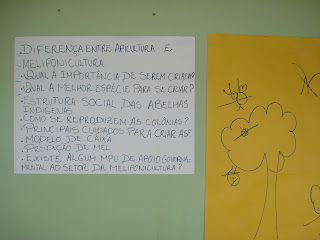 . DIFERENÇA ENTRE APICULTURA E
MELIPONICULTURA
. QUAL A IMPORTÂNCIA DE SEREM CRIADAS?
. QUAL A MELHOR ESPÉCIE PARA SE CRIAR?
. ESTRUTURA SOCIAL DAS ABELHAS
INDÍGENAS
. COMO SE REPRODUZEM AS COLÔNIAS?
. PRINCIPAIS CUIDADOS PARA CRIAR ASF
. MODELO DE CAIXA
. PRODUÇÃO DE MEL
. EXISTE ALGUM MPU DE APOIO GOVERNA-
MENTAL AO SETOR DA MELIPONICULTURA?